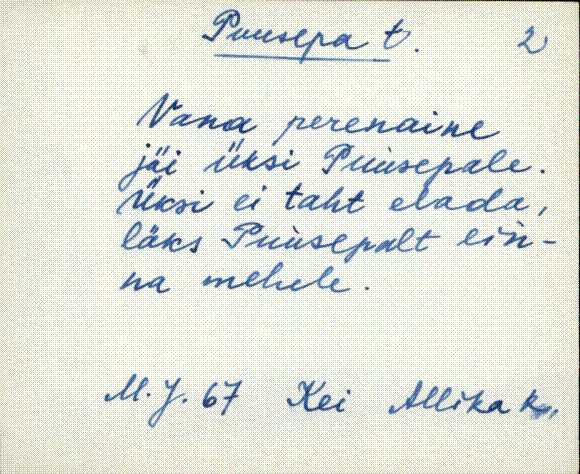 Puusepa t. 2
Vana perenaine
jäi üksi Puùsepale.
Üksi ei taht elada,
läks Puùsepalt
na mehele.
M.J. 67 Kei Allika k.